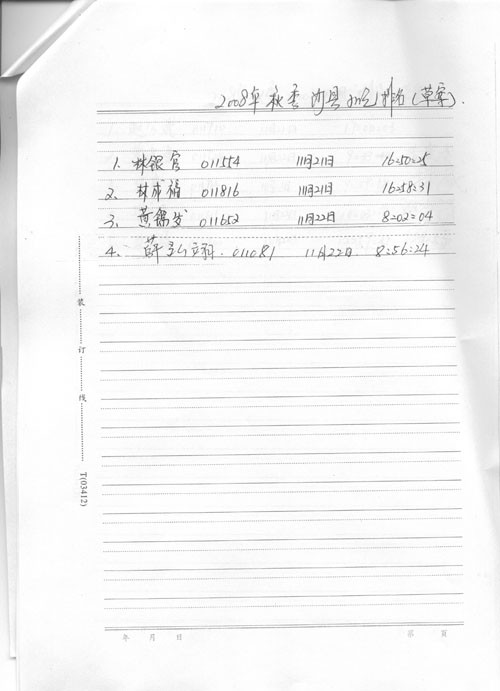 2008年秋季 内县 排名(草案).
1. 林银官 011554 11月21日 16:50:25
2. 林成福 011816 11月21日 16:58:31
3. 黄锦 011652 11月22日 8:02:04
4. 薛 011081 11月22日 8:56:24
装
订
线
T(03412)
年 月 日 第 页